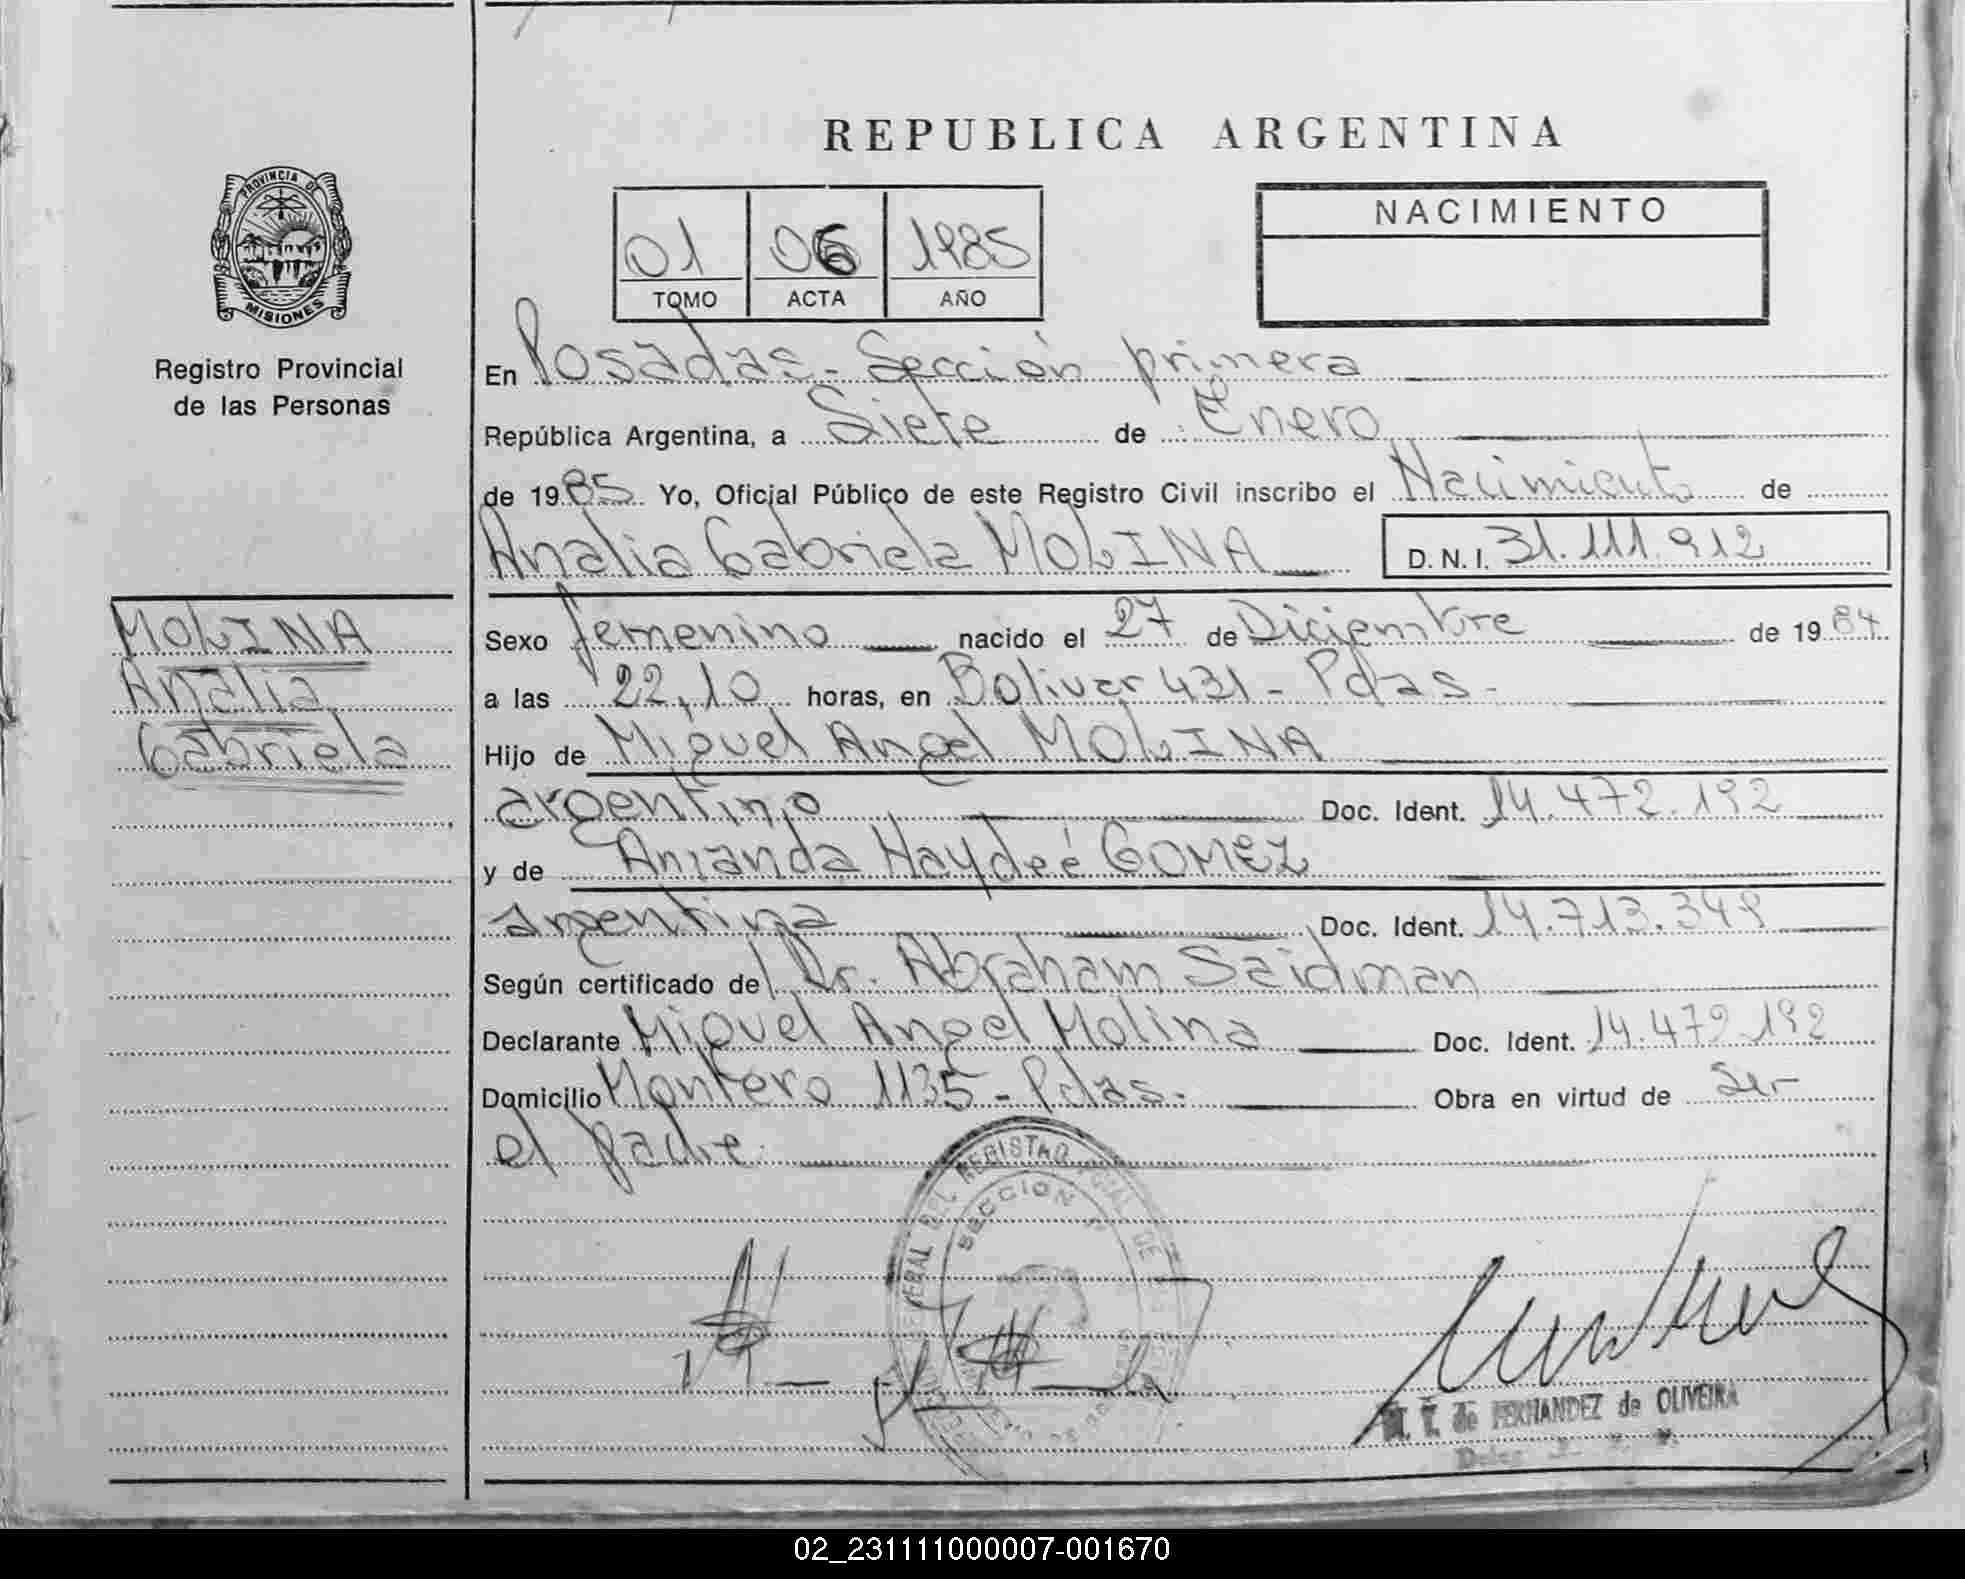 REPUBLICA ARGENTINA
PROVINCIA DE
MISIONES
Registro Provincial
de las Personas
01 06 1985
TOMO ACTA AÑO
NACIMIENTO
En Posadas - Sección primera
República Argentina, a Siete de Enero
de 1985 Yo, Oficial Público de este Registro Civil inscribo el Nacimiento de
Analia Gabriela MOLINA D.N.I. 31.111.912
MOLINA
Analia
Gabriela
Sexo femenino nacido el 27 de Diciembre de 1984
a las 22,10 horas, en Bolivar 431 - Pdas -
Hijo de Miguel Angel MOLINA
argentino Doc. Ident. 14.472.192
y de Amanda Haydeé GOMEZ
argentina Doc. Ident. 14.713.349
Según certificado de Dr. Abraham Saidman
Declarante Miguel Angel Molina Doc. Ident. 14.472.192
Domicilio Montero 1135 - Pdas - Obra en virtud de Ser
el padre.
REGISTRO
SECCION 1ª
FERNANDEZ de OLIVEIRA
02_231111000007-001670